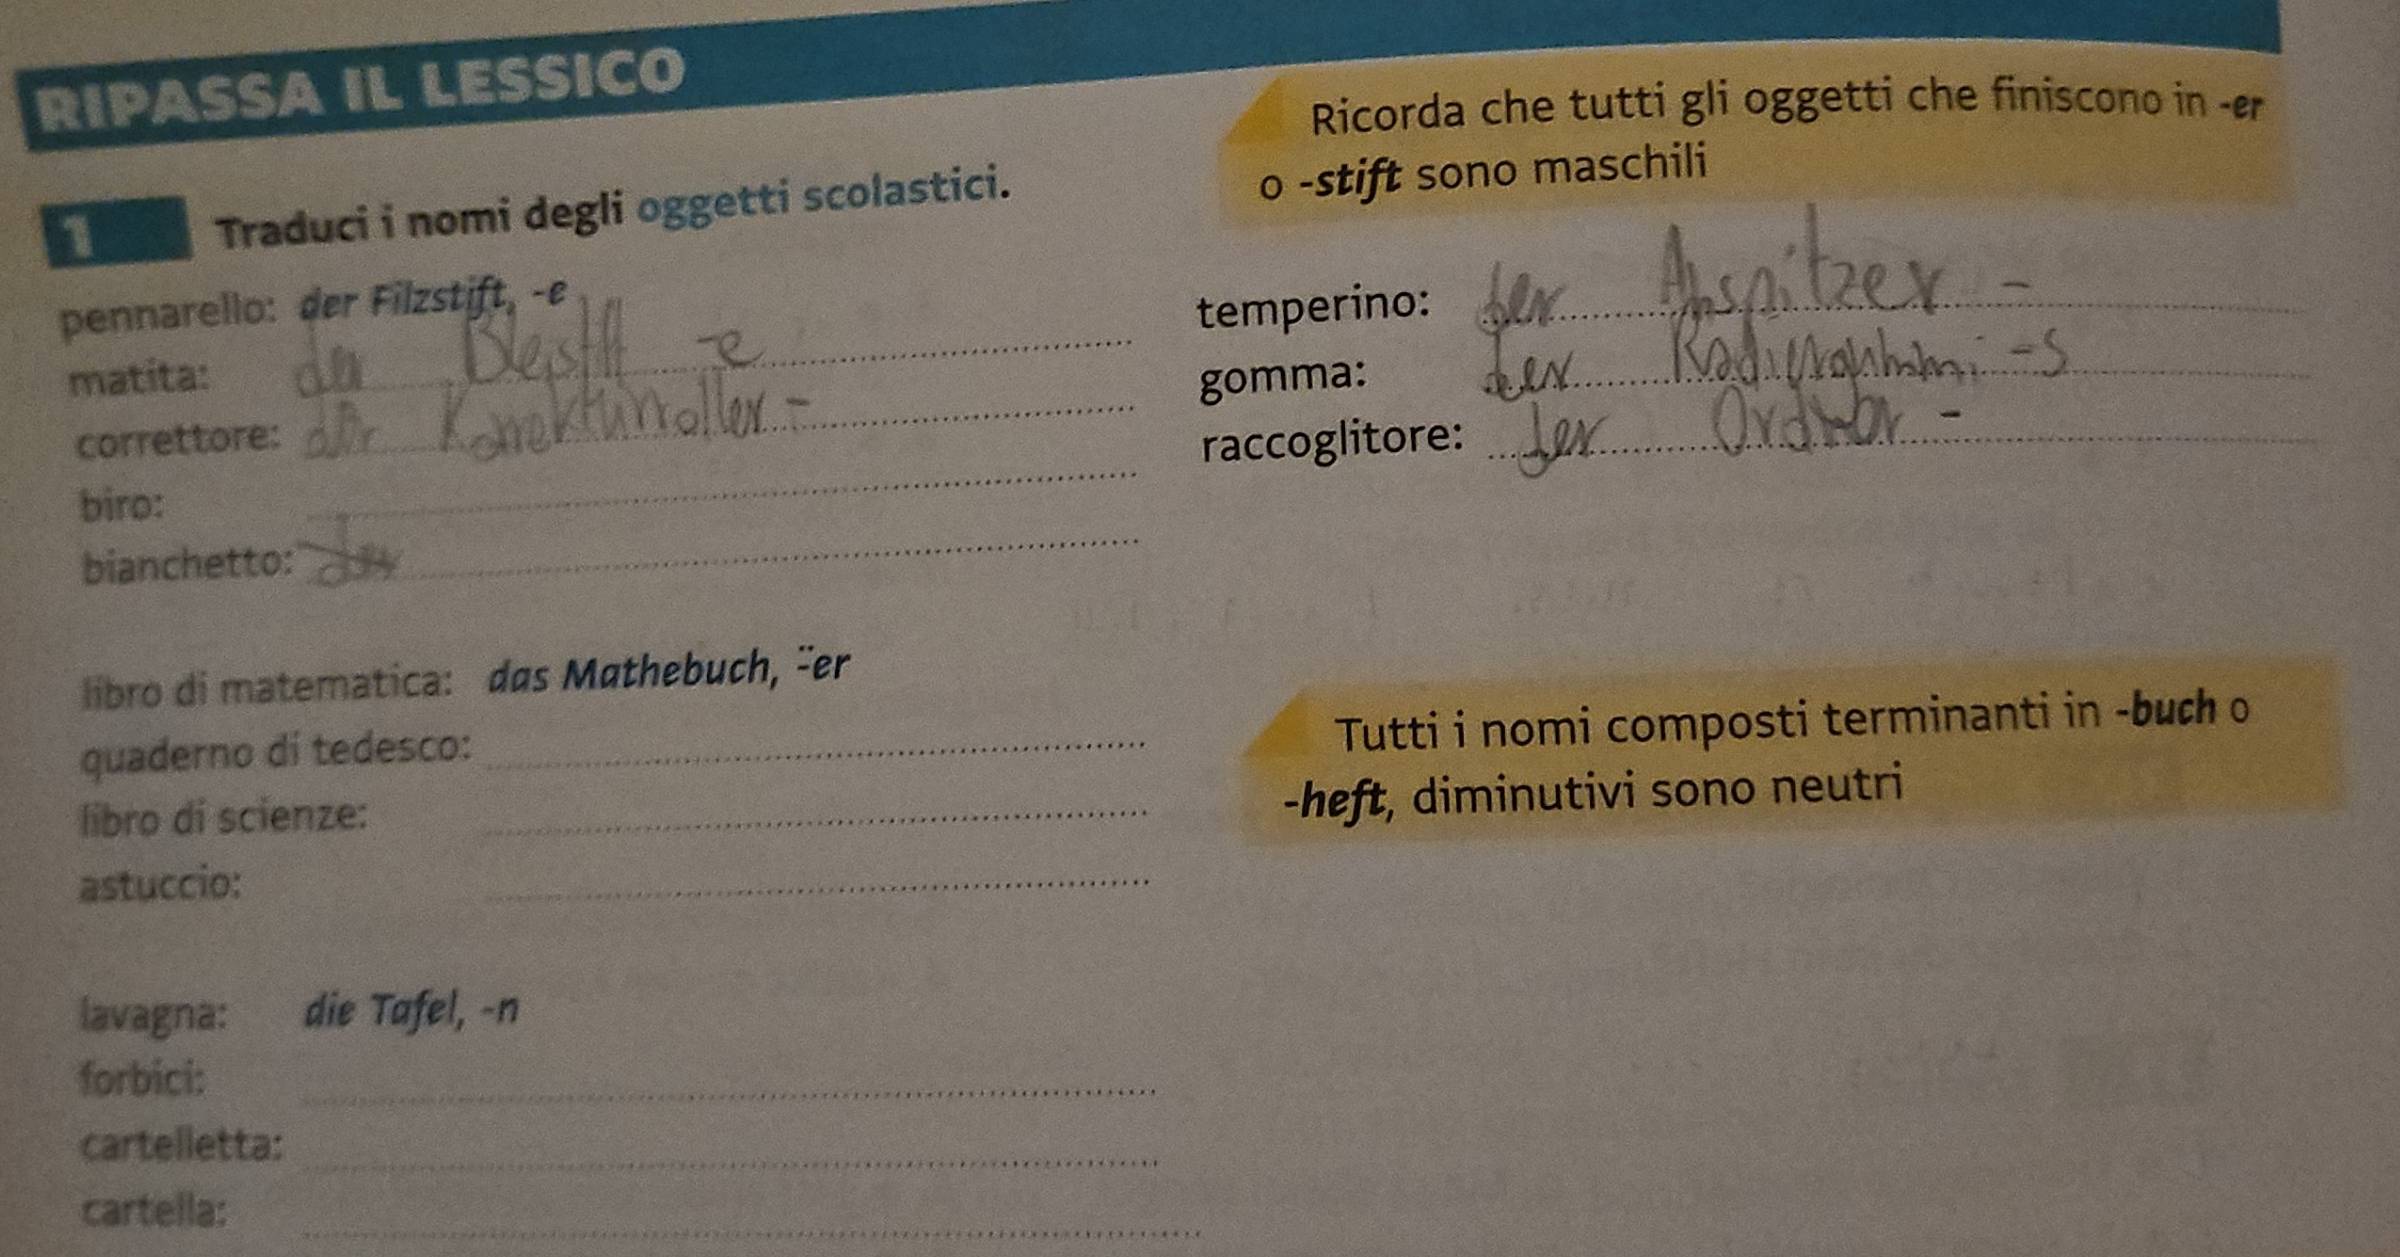 RIPASSA IL LESSICO
Ricorda che tutti gli oggetti che finiscono in -er
o -stift sono maschili
1 Traduci i nomi degli oggetti scolastici.
pennarello: der Filzstift, -e
matita: der Bleistift -e
correttore: der Korrekturroller -
biro:
bianchetto: der
temperino: der Anspitzer -
gomma: der Radiergummi -s
raccoglitore: der Ordner -
libro di matematica: das Mathebuch, -̈er
quaderno di tedesco:
libro di scienze:
astuccio:
Tutti i nomi composti terminanti in -buch o
-heft, diminutivi sono neutri
lavagna: die Tafel, -n
forbici:
cartelletta:
cartella: